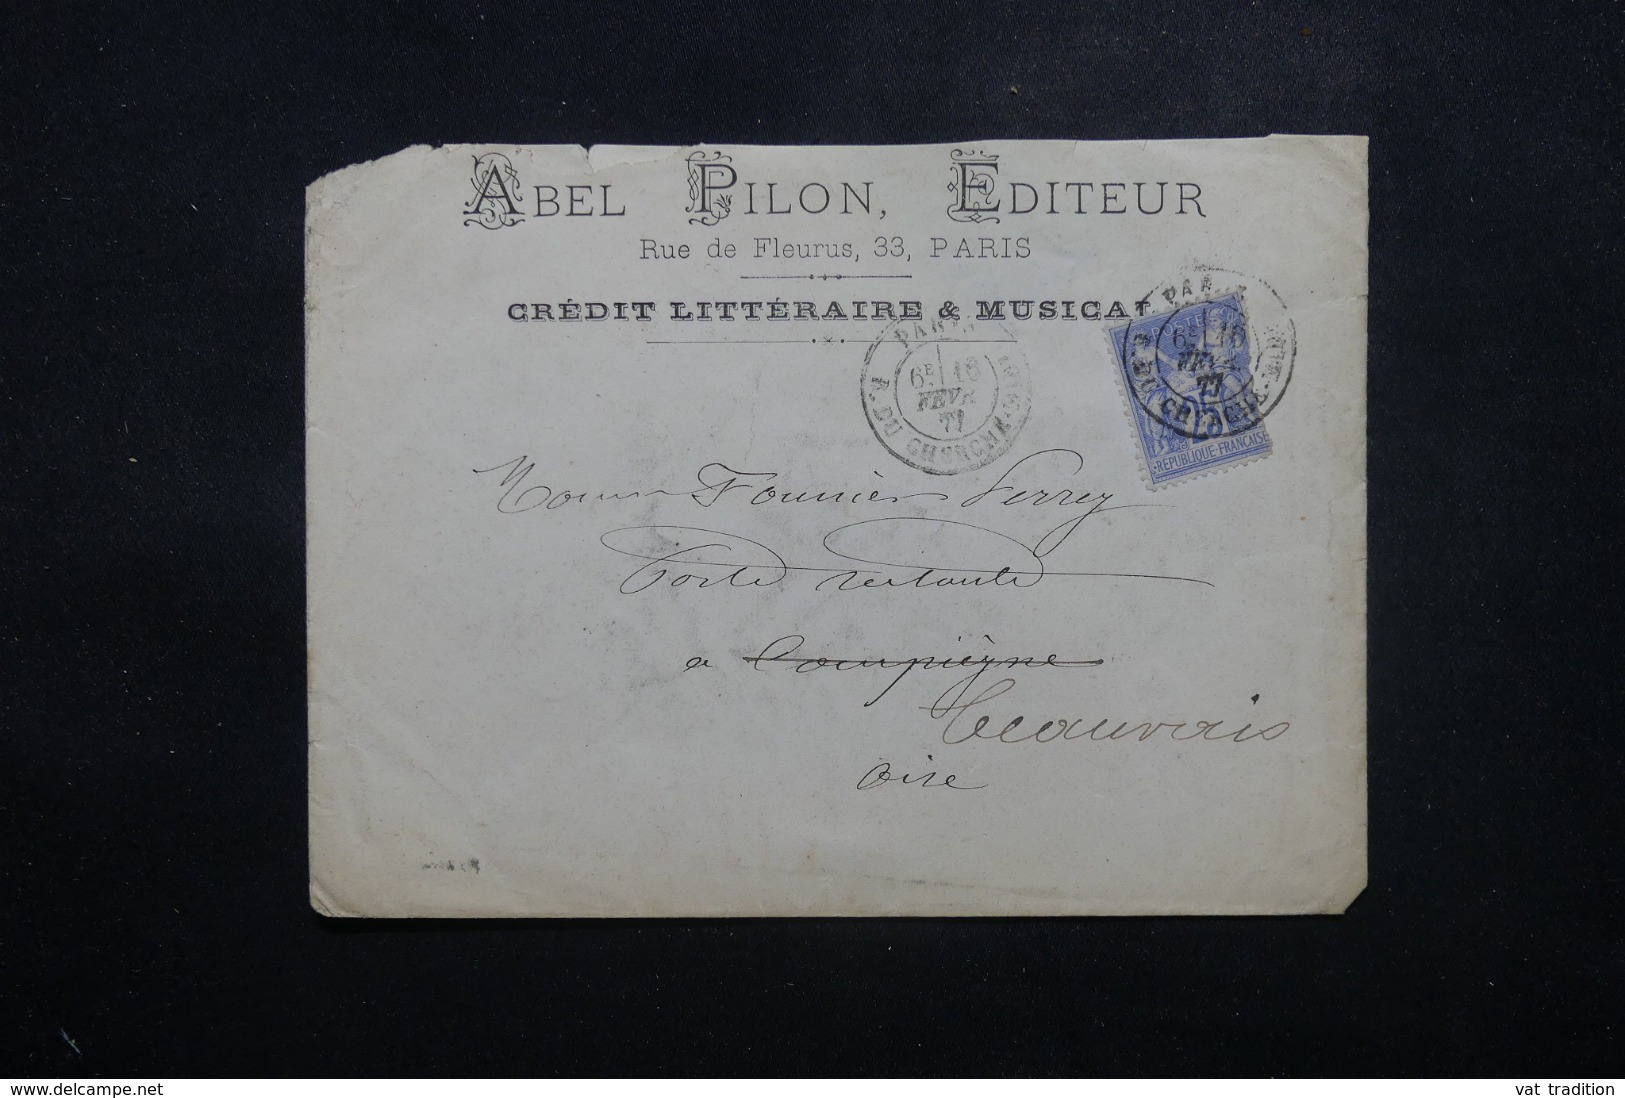 ABEL PILON, EDITEUR
Rue de Fleurus, 33, PARIS
CRÉDIT LITTÉRAIRE & MUSICAL
PARIS
6E 16
FEVR
77
R. DU CHERCHE-MIDI
PARIS
6E 16
FEVR
77
R. DU CHERCHE-MIDI
POSTES
25
REPUBLIQUE FRANÇAISE
Fournier Perrey
Poste restante
a Compiègne
Beauvais
Oise
www.delcampe.net
vat tradition